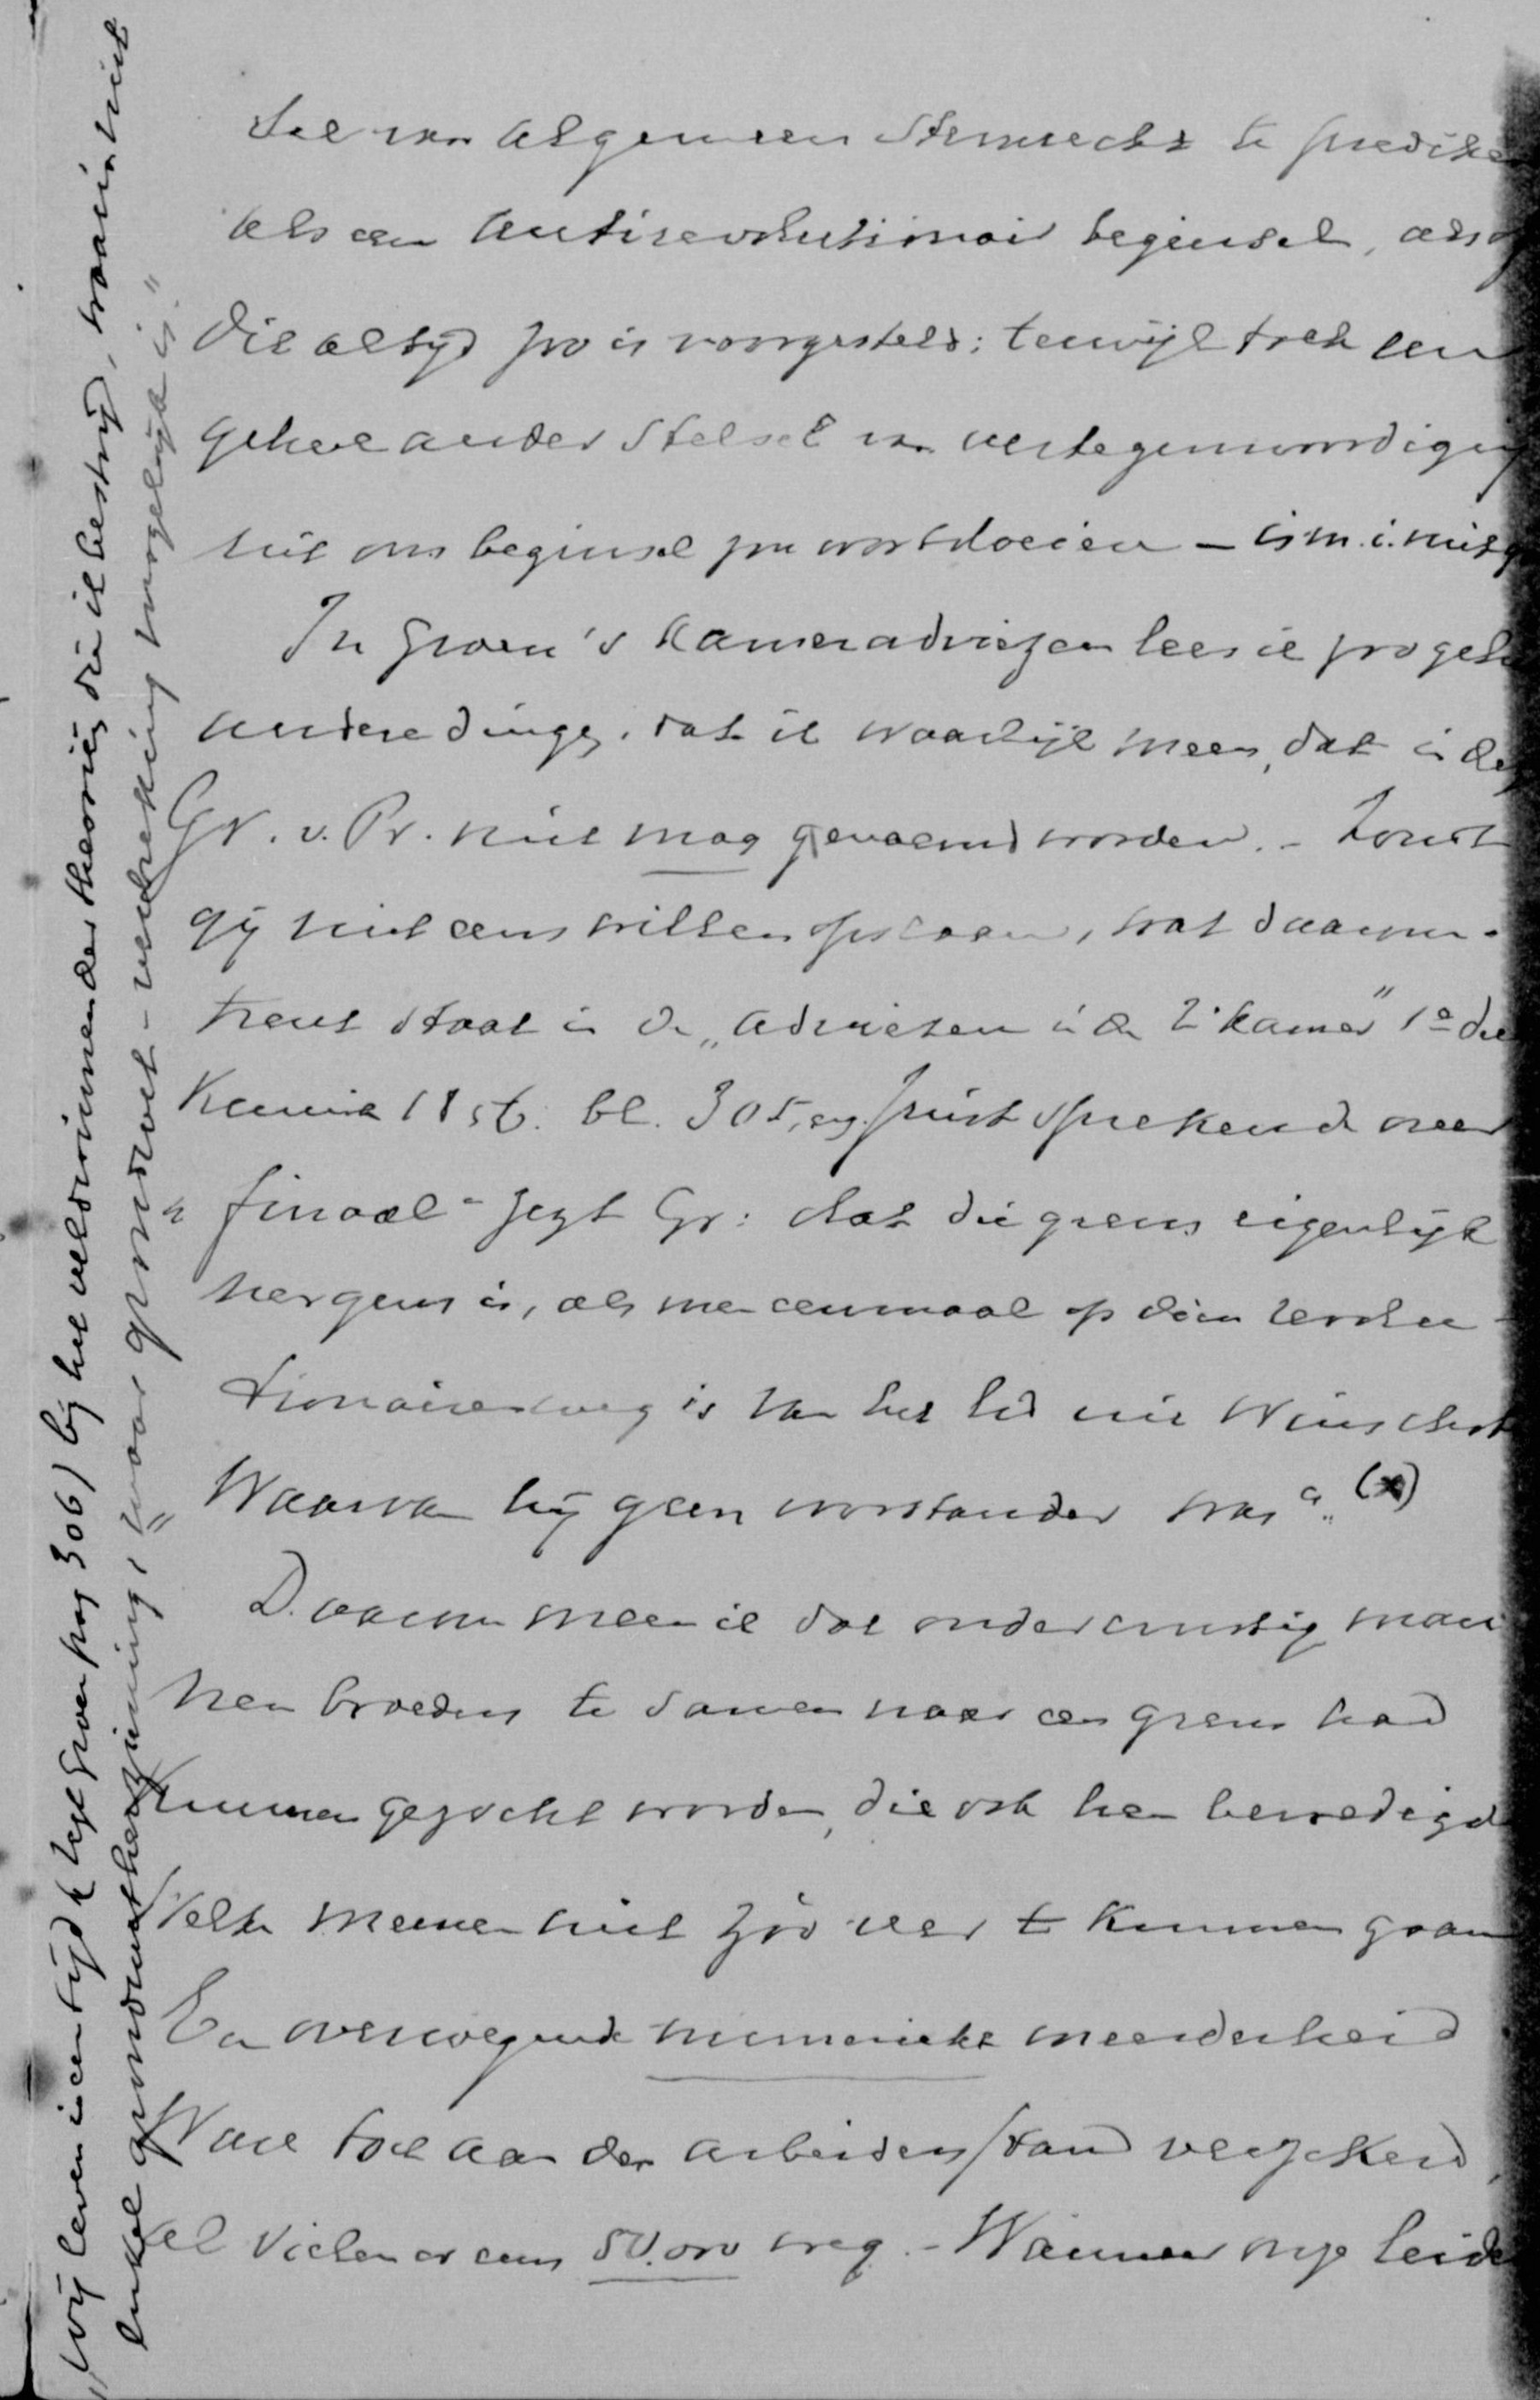 van algemeen stemrecht te prediken
als een antirevolutionair beginsel, alsof
die altijd zoo is voorgesteld; terwijl toch een
geheel ander stelsel van vertegenwoordiging
uit ons beginsel zou voortvloeien – is m.i. misg
In Groen's Kameradviezen lees ik zoo geheel
andere dingen, dat ik waarlijk meen, dat in dez
Gr. v. Pr. niet mag genoemd worden. – Zoudt
gij niet eens willen opslaan, wat daarom-
trent staat in de „adviezen in de 2e kamer" 1e
1856. bl. 305, en juist sprekende over
finaal – zegt Gr: dat die grens eigenlijk
nergens is, als men eenmaal op dien revolu-
tionairen weg is van het lid uit Winschoten
Waarvan hij geen voorstander was". (x)
Daarom meen ik dat onder ernstig
nen broeders te samen naar een grens had
kunnen gezocht worden, die ook hen bevredigde
welke meenen niet zóó ver te kunnen gaan
Een overwegende numerieke meerderheid
Ware toch aan den arbeidersstand verzekerd,
al vielen er eens 50.000 weg. – Wanneer onze leide
„Wij leven in een tijd (zegt Groen pag 306) bij het veldwinnen der theoriën die ik bestrijd, waarin niet
enkel grondwetherziening, „maar grondwet-verbreking mogelijk is."